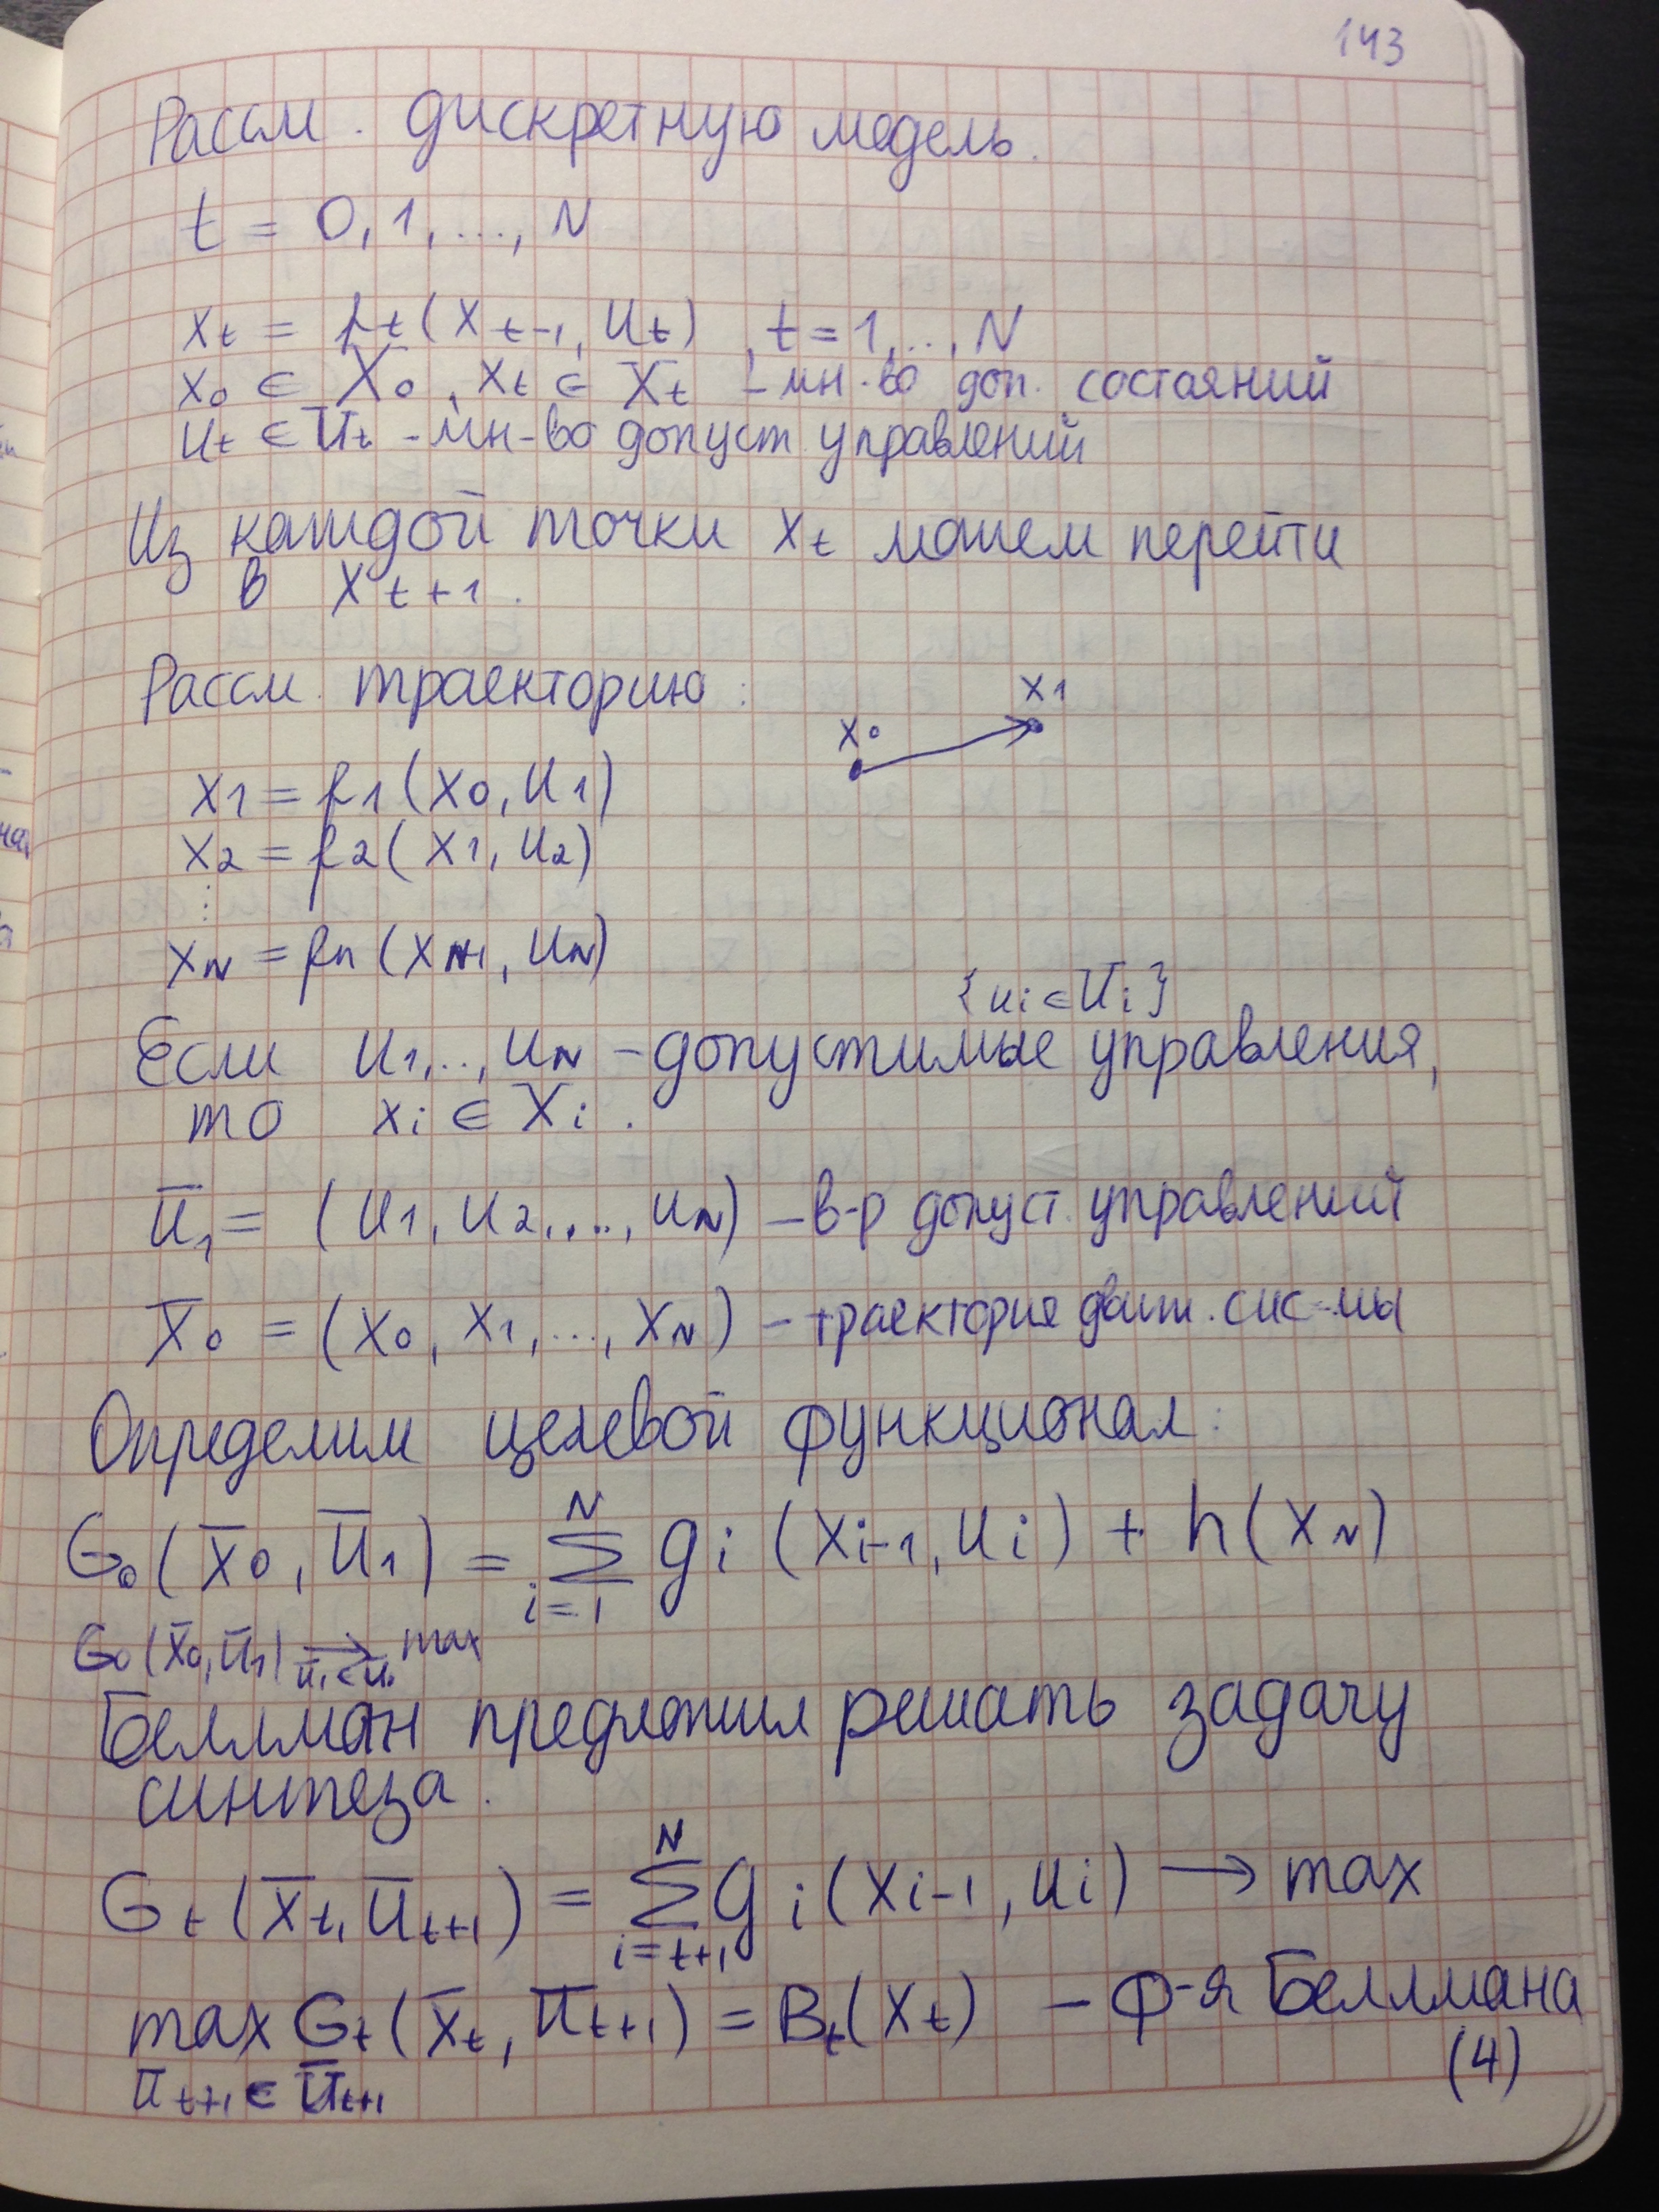 143
Рассм. дискретную модель.
t = 0, 1, ..., N
x_t = f_t(x_{t-1}, u_t), t = 1, .., N
x_0 ∈ X_0, x_t ∈ X_t - мн-во доп. состояний
u_t ∈ U_t - мн-во допуст управлений
Из каждой точки x_t можем перейти
в x_{t+1}.
Рассм. траекторию:
x_0 x_1
x_1 = f_1(x_0, u_1)
x_2 = f_2(x_1, u_2)
⋮
x_N = f_n(x_{N-1}, u_N)
{u_i ∈ U_i}
Если u_1, .., u_N - допустимые управления,
то x_i ∈ X_i.
ū_1 = (u_1, u_2, ..., u_N) - в-р допуст. управлений
x̄_0 = (x_0, x_1, ..., x_N) - траектория движ. сис-мы
Определим целевой функционал:
G_0(x̄_0, ū_1) = ∑_{i=1}^{N} g_i(x_{i-1}, u_i) + h(x_N)
G_0(x̄_0, ū_1) → max
Беллман предложил решать задачу
синтеза.
G_t(x̄_t, ū_{t+1}) = ∑_{i=t+1}^{N} g_i(x_{i-1}, u_i) → max
max G_t(x̄_t, ū_{t+1}) = B_t(x_t) - ф-я Беллмана
ū_{t+1} ∈ Ū_{t+1} (4)